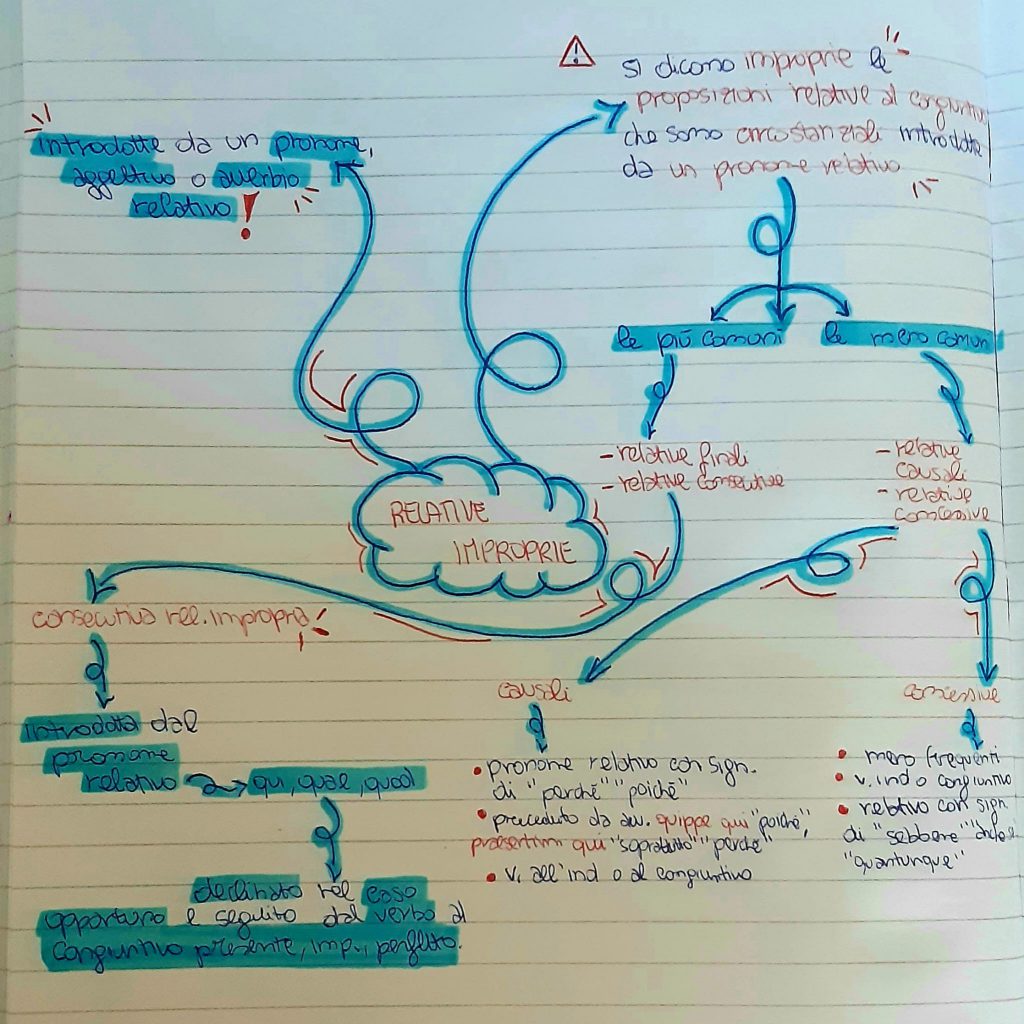 si dicono improprie le
proposizioni relative al congiuntivo
che sono circostanziali introdotte
da un pronome relativo
introdotte da un pronome,
aggettivo o avverbio
relativo!
le più comuni
le meno comuni
- relative finali
- relative consecutive
- relative
causali
- relative
concessive
RELATIVE
IMPROPRIE
consecutiva rel. impropria
introdotta dal
pronome
relativo → qui, quae, quod
declinato nel caso
opportuno e seguito dal verbo al
congiuntivo presente, imp., perfetto.
causali
• pronome relativo con sign.
di "perché" "poiché"
• preceduto da avv. quippe qui "poiché",
praesertim qui "sopratutto" "perché"
• v. all'ind o al congiuntivo
concessive
• meno frequenti
• v. ind o congiuntivo
• relativo con sign.
di "sebbene" "anche se"
"quantunque"